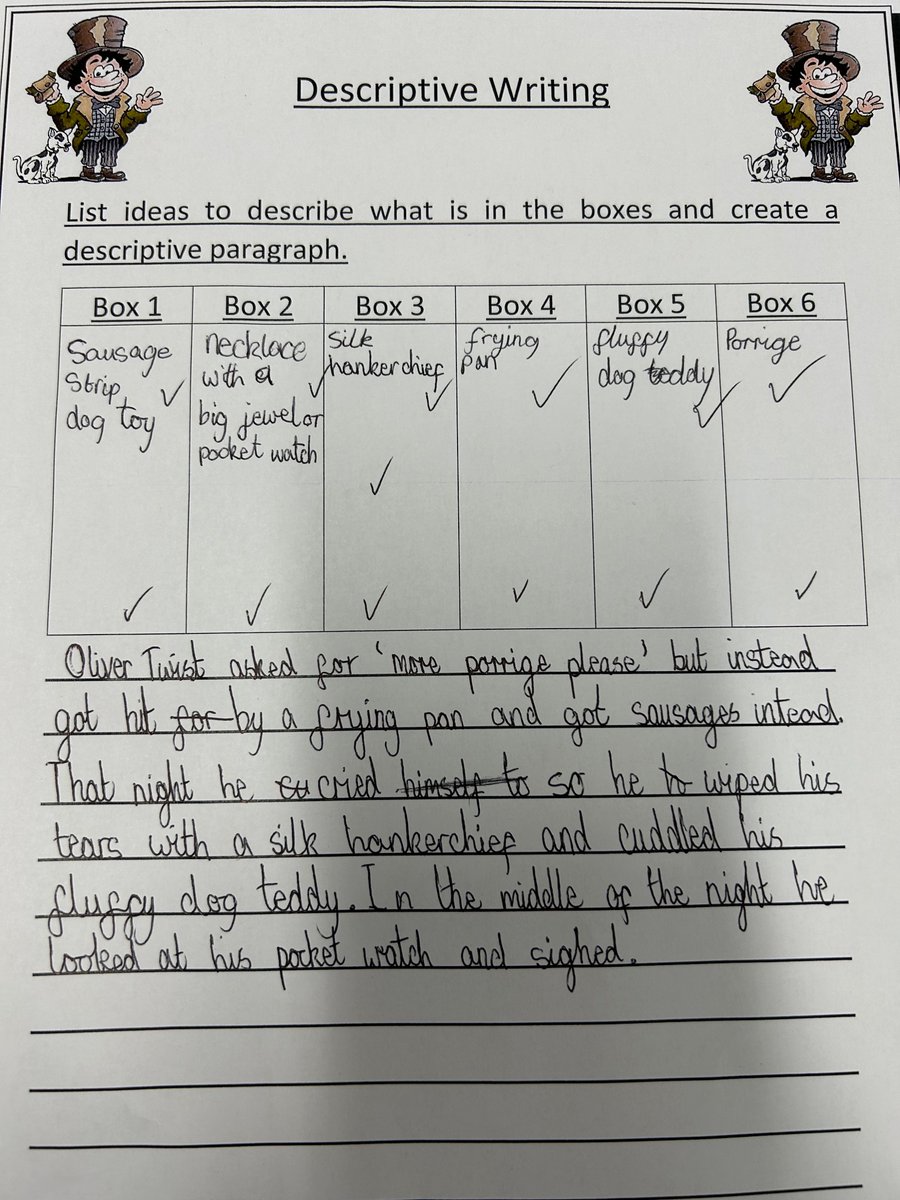 Descriptive Writing
List ideas to describe what is in the boxes and create a
descriptive paragraph.
Box 1 Box 2 Box 3 Box 4 Box 5 Box 6
Sausage
Strip
dog toy
necklace
with a
big jewel or
pocket watch
Silk
hankerchief
frying
pan
fluffy
dog teddy
Porrige
Oliver Twist asked for 'more porrige please' but instead
got hit for by a frying pan and got sausages intead.
That night he cried himself to so he to wiped his
tears with a silk hankerchief and cuddled his
fluffy dog teddy. In the middle of the night he
looked at his pocket watch and sighed.